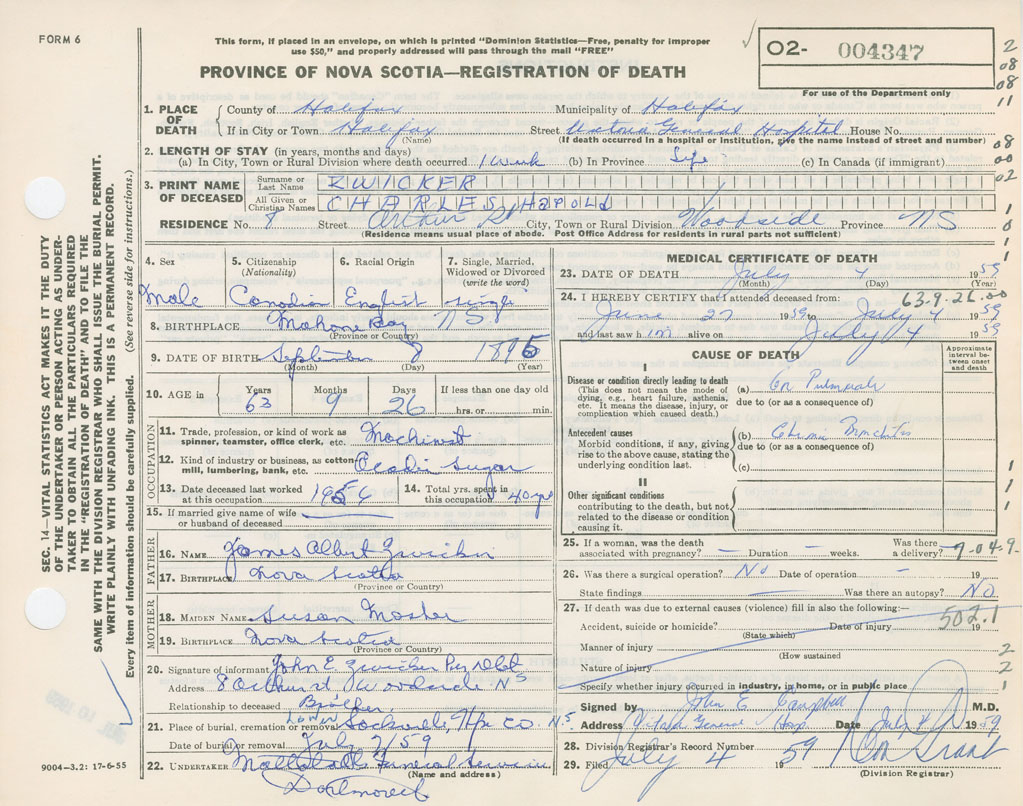 FORM 6
This form, if placed in an envelope, on which is printed "Dominion Statistics—Free, penalty for improper
use $50," and properly addressed will pass through the mail "FREE"
PROVINCE OF NOVA SCOTIA—REGISTRATION OF DEATH
O2- 004347
For use of the Department only
2
08
08
11
08
00
02
1. PLACE OF DEATH { County of Halifax Municipality of Halifax
If in City or Town Halifax Street Victoria General Hospital House No.
(Name) (If death occurred in a hospital or institution, give the name instead of street and number)
2. LENGTH OF STAY (in years, months and days)
(a) In City, Town or Rural Division where death occurred 1 week (b) In Province Life (c) In Canada (if immigrant)
3. PRINT NAME OF DECEASED
Surname or Last Name ZWICKER
All Given or Christian Names CHARLES HAROLD
RESIDENCE No. 8 Street Arthur St City, Town or Rural Division Woodside Province NS
(Residence means usual place of abode. Post Office Address for residents in rural parts not sufficient)
4. Sex
Male
5. Citizenship (Nationality)
Canadian
6. Racial Origin
English
7. Single, Married, Widowed or Divorced (write the word)
single
8. BIRTHPLACE Mahone Bay NS
(Province or Country)
9. DATE OF BIRTH September 8 1895
(Month) (Day) (Year)
10. AGE in
Years Months Days If less than one day old
63 9 26 hrs. or min.
OCCUPATION
11. Trade, profession, or kind of work as spinner, teamster, office clerk, etc. Machinist
12. Kind of industry or business, as cotton mill, lumbering, bank, etc. Acadia Sugar
13. Date deceased last worked at this occupation 1956
14. Total yrs. spent in this occupation 40 yrs
15. If married give name of wife or husband of deceased
FATHER
16. NAME James Albert Zwicker
17. BIRTHPLACE Nova Scotia
(Province or Country)
MOTHER
18. MAIDEN NAME Susan Mosher
19. BIRTHPLACE Nova Scotia
(Province or Country)
20. Signature of informant John E. Zwicker Per
Address 8 Arthur st Woodside NS
Relationship to deceased Brother
21. Place of burial, cremation or removal Lower Sackville Hfx Co. N.S
Date of burial or removal July /59
22. UNDERTAKER Funeral Service
(Name and address)
Dartmouth
MEDICAL CERTIFICATE OF DEATH
23. DATE OF DEATH July 4 1959
(Month) (Day)
24. I HEREBY CERTIFY that I attended deceased from: 63.9.26.00
June 27 1959 to July 4 1959
and last saw him alive on July 4 1959
CAUSE OF DEATH
Approximate interval between onset and death
I
Disease or condition directly leading to death
(This does not mean the mode of dying, e.g., heart failure, asthenia, etc. It means the disease, injury, or complication which caused death.)
(a) Cor Pulmonale
due to (or as a consequence of)
Antecedent causes
Morbid conditions, if any, giving rise to the above cause, stating the underlying condition last.
(b) Chronic Bronchitis
due to (or as a consequence of)
(c)
II
Other significant conditions contributing to the death, but not related to the disease or condition causing it.
25. If a woman, was the death associated with pregnancy? — Duration — weeks. Was there a delivery? 9-04-9-
26. Was there a surgical operation? No Date of operation — 19
State findings — Was there an autopsy? No
27. If death was due to external causes (violence) fill in also the following:—
Accident, suicide or homicide? Date of injury 19 502.1
(State which)
Manner of injury
(How sustained
Nature of injury
Specify whether injury occurred in industry, in home, or in public place
Signed by John E Campbell M.D.
Address Victoria General Hosp. Date July 4 1959
28. Division Registrar's Record Number
29. Filed July 4 59 Grant
(Division Registrar)
SEC. 14—VITAL STATISTICS ACT MAKES IT THE DUTY
OF THE UNDERTAKER OR PERSON ACTING AS UNDER-
TAKER TO OBTAIN ALL THE PARTICULARS REQUIRED
IN THE "REGISTRATION OF DEATH" AND FILE THE
SAME WITH THE DIVISION REGISTRAR WHO SHALL ISSUE THE BURIAL PERMIT.
WRITE PLAINLY WITH UNFADING INK. THIS IS A PERMANENT RECORD.
Every item of information should be carefully supplied. (See reverse side for instructions.)
JUL 10 1959
9004—3.2: 17-6-55